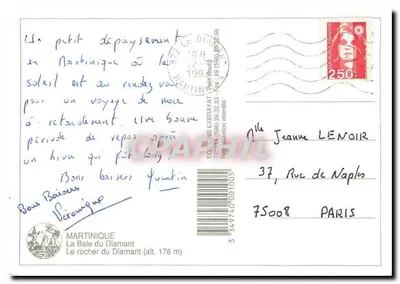 Un petit dépaysement
en Martinique où le
soleil est au rendez vous
pour un voyage de noce
à retardement. Une bonne
période de repos après
un hiver qui fut long !
Bons baisers Quentin
Bons Baisers
Véronique
MARTINIQUE
La Baie du Diamant
Le rocher du Diamant (alt. 176 m)
3 349740 001005
LE DIAMANT
2,50
Mlle Jeanne LENOIR
37, Rue de Naples
75008 PARIS